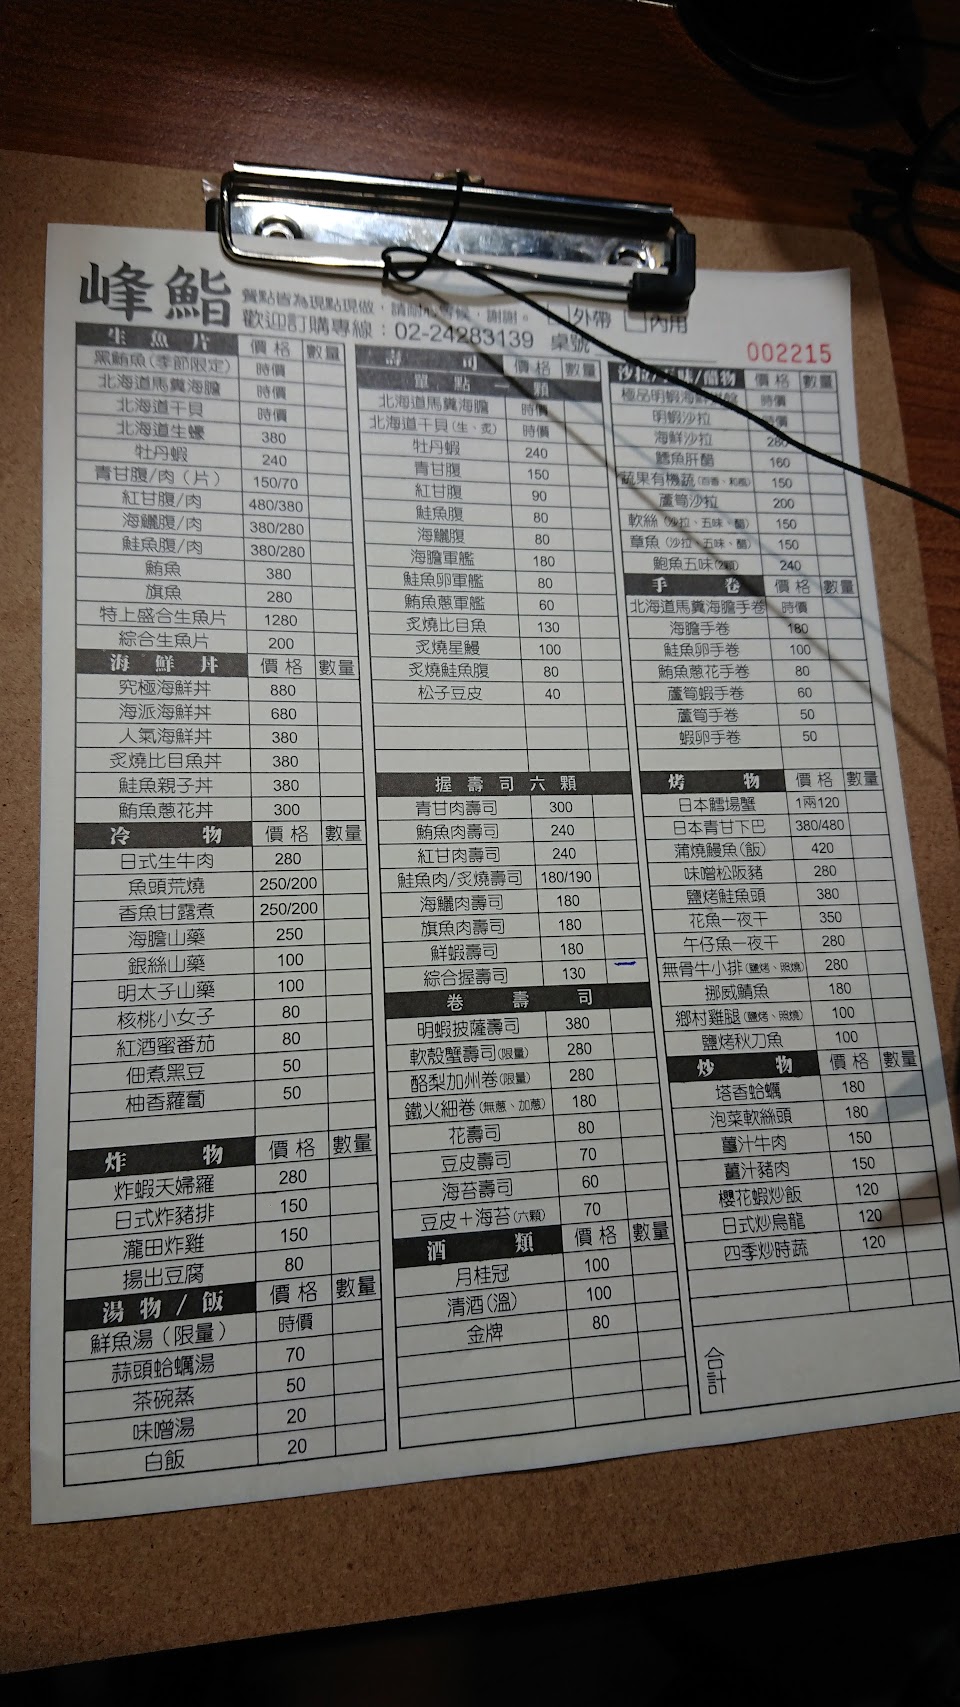 峰鮨
餐點皆為現點現做，請耐心等候，謝謝。
歡迎訂購專線：02-24283139 桌號
外帶 內用
002215
生魚片 價格 數量
黑鮪魚(季節限定) 時價
北海道馬糞海膽 時價
北海道干貝 時價
北海道生蠔 380
牡丹蝦 240
青甘腹/肉（片） 150/70
紅甘腹/肉 480/380
海鱺腹/肉 380/280
鮭魚腹/肉 380/280
鮪魚 380
旗魚 280
特上盛合生魚片 1280
綜合生魚片 200
海鮮丼 價格 數量
究極海鮮丼 880
海派海鮮丼 680
人氣海鮮丼 380
炙燒比目魚丼 380
鮭魚親子丼 380
鮪魚蔥花丼 300
冷物 價格 數量
日式生牛肉 280
魚頭荒燒 250/200
香魚甘露煮 250/200
海膽山藥 250
銀絲山藥 100
明太子山藥 100
核桃小女子 80
紅酒蜜番茄 80
佃煮黑豆 50
柚香蘿蔔 50
炸物 價格 數量
炸蝦天婦羅 280
日式炸豬排 150
瀧田炸雞 150
揚出豆腐 80
湯物/飯 價格 數量
鮮魚湯（限量） 時價
蒜頭蛤蠣湯 70
茶碗蒸 50
味噌湯 20
白飯 20
壽司 價格 數量
單點一顆
北海道馬糞海膽 時價
北海道干貝(生、炙) 時價
牡丹蝦 240
青甘腹 150
紅甘腹 90
鮭魚腹 80
海鱺腹 80
海膽軍艦 180
鮭魚卵軍艦 80
鮪魚蔥軍艦 60
炙燒比目魚 130
炙燒星鰻 100
炙燒鮭魚腹 80
松子豆皮 40
握壽司六顆
青甘肉壽司 300
鮪魚肉壽司 240
紅甘肉壽司 240
鮭魚肉/炙燒壽司 180/190
海鱺肉壽司 180
旗魚肉壽司 180
鮮蝦壽司 180
綜合握壽司 130 一
卷壽司
明蝦披薩壽司 380
軟殼蟹壽司(限量) 280
酪梨加州卷(限量) 280
鐵火細卷(無蔥、加蔥) 180
花壽司 80
豆皮壽司 70
海苔壽司 60
豆皮＋海苔(六顆) 70
酒類 價格 數量
月桂冠 100
清酒(溫) 100
金牌 80
沙拉/五味/醋物 價格 數量
極品明蝦海鮮拼盤 時價
明蝦沙拉 時價
海鮮沙拉 280
鱈魚肝醋 160
蔬果有機蔬(百香、和風) 150
蘆筍沙拉 200
軟絲(沙拉、五味、醋) 150
章魚(沙拉、五味、醋) 150
鮑魚五味(2顆) 240
手卷 價格 數量
北海道馬糞海膽手卷 時價
海膽手卷 180
鮭魚卵手卷 100
鮪魚蔥花手卷 80
蘆筍蝦手卷 60
蘆筍手卷 50
蝦卵手卷 50
烤物 價格 數量
日本鱈場蟹 1兩120
日本青甘下巴 380/480
蒲燒鰻魚(飯) 420
味噌松阪豬 280
鹽烤鮭魚頭 380
花魚一夜干 350
午仔魚一夜干 280
無骨牛小排(鹽烤、照燒) 280
挪威鯖魚 180
鄉村雞腿(鹽烤、照燒) 100
鹽烤秋刀魚 100
炒物 價格 數量
塔香蛤蠣 180
泡菜軟絲頭 180
薑汁牛肉 150
薑汁豬肉 150
櫻花蝦炒飯 120
日式炒烏龍 120
四季炒時蔬 120
合計